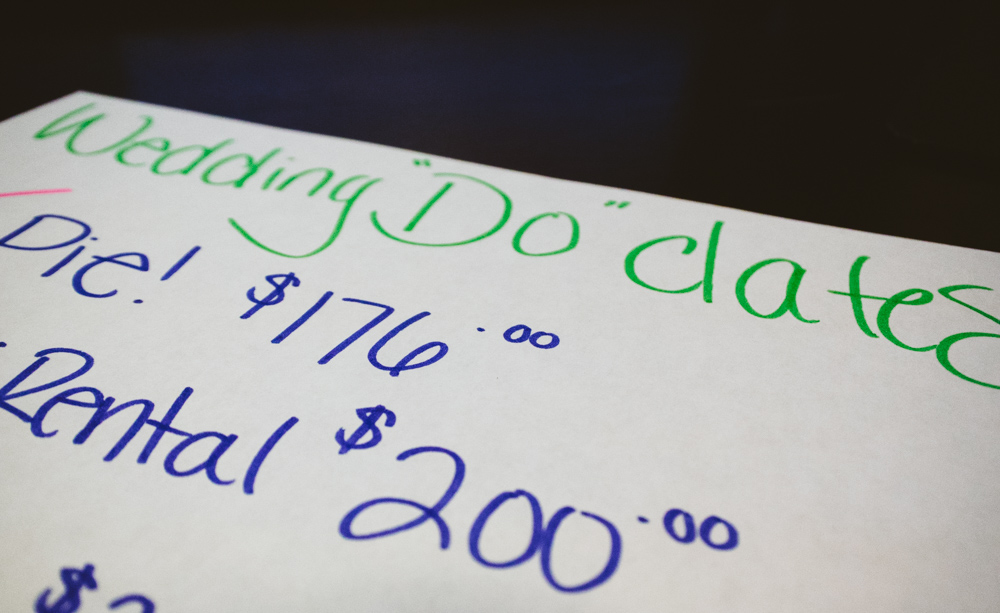 Wedding "Do" dates
Die! $176.00
Rental $200.00
$2